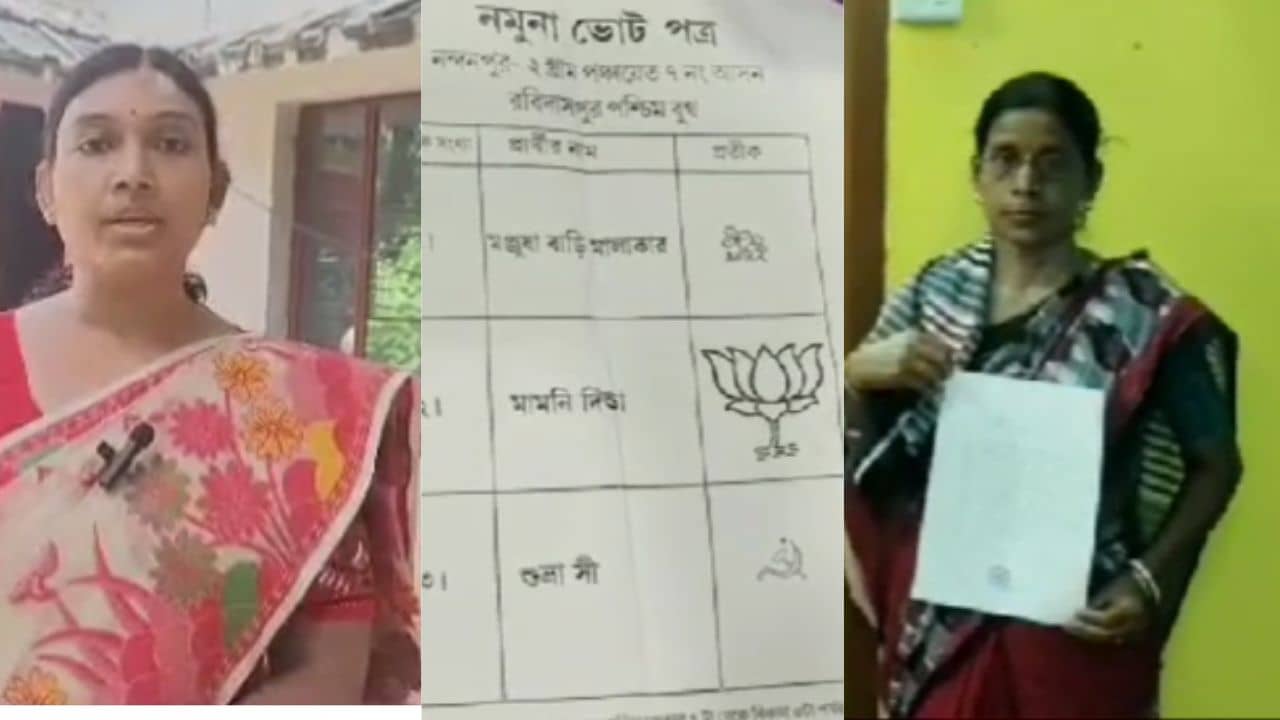 নমুনা ভোট পত্র
নন্দনপুর- ২ গ্রাম পঞ্চায়েত ৭ নং আসন
রবিদাসপুর পশ্চিম বুথ
সংখ্যা প্রার্থীর নাম প্রতীক
মঞ্জুষা বাড়ি মালাকার
২। মামনি দিণ্ডা
৩। শুভ্রা সী